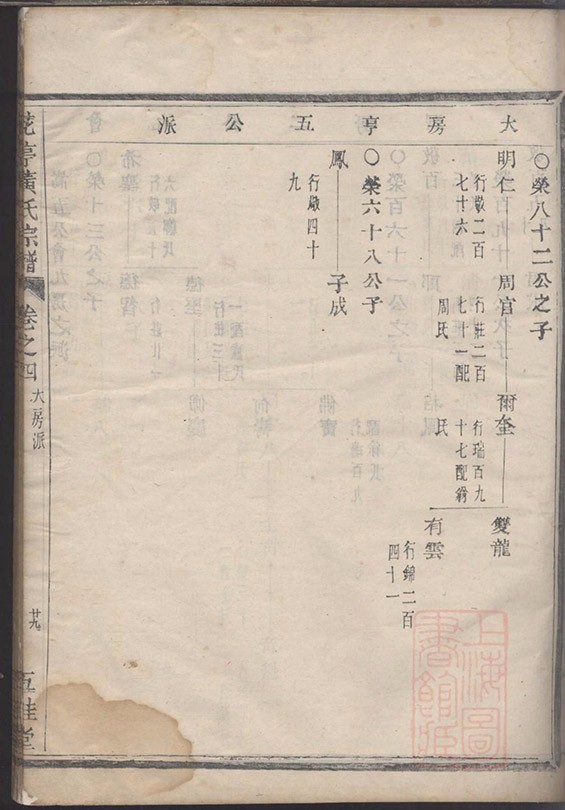 大房亨五公派
○榮八十二公之子
明仁
行儆二百
七十六
周官
行莊二百
七十一配
周氏
爾奎
行瑞百九
十七配翁
氏
雙龍
有雲
行錦二百
四十一
○榮六十八公子
鳳
行儆四十
九
子成
花亭黃氏宗譜
卷之四
大房派
廿九
五桂堂
上海圖
書館藏